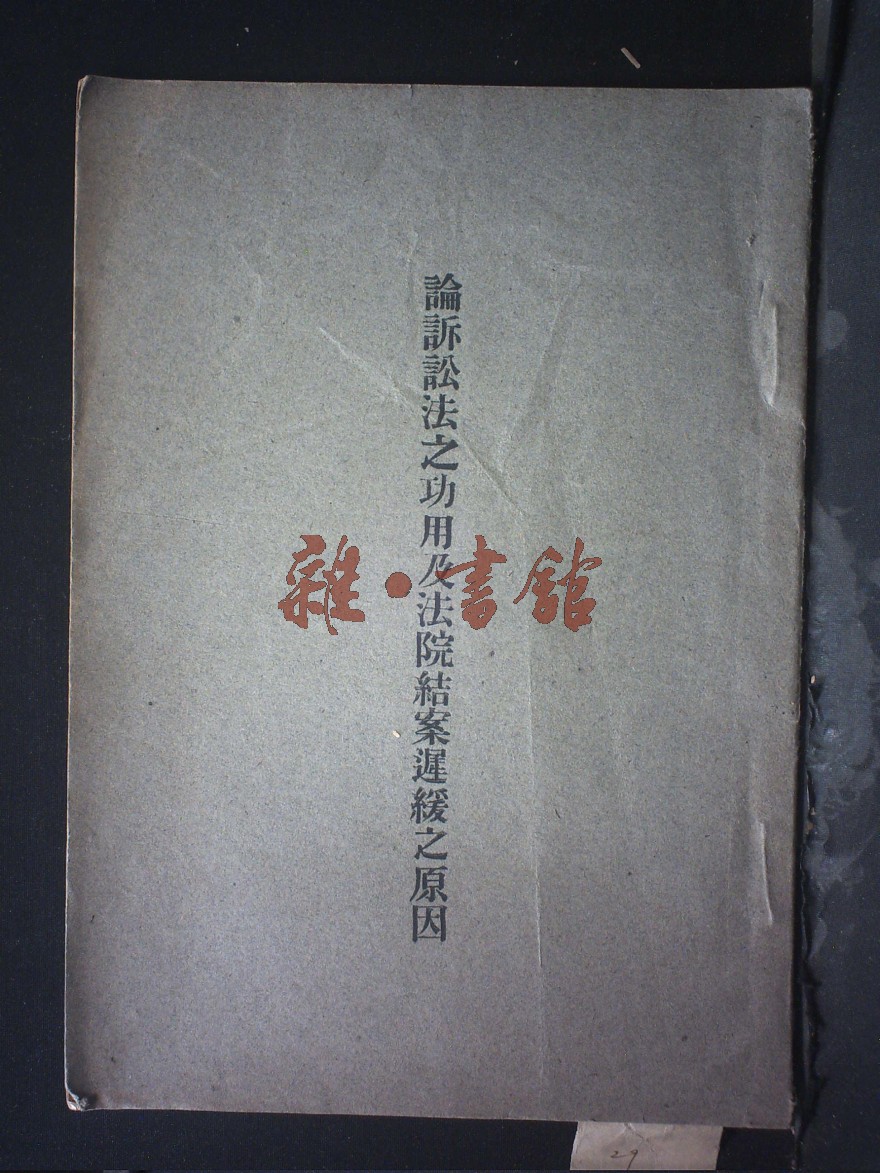 論訴訟法之功用及法院結案遲緩之原因
雜·書館
29